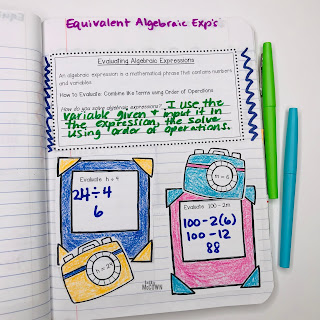 Equivalent Algebraic Exp's
Evaluating Algebraic Expressions
An algebraic expression is a mathematical phrase that contains numbers
and variables.
How to Evaluate: Combine like terms using Order of Operations.
How do you solve algebraic expressions? I use the
variable given + input it in
the expression, the solve
using order of operations.
Evaluate h ÷ 4
24÷4
6
h = 24
n = 6
Evaluate 100 - 2n
100-2(6)
100-12
88
McCOWN